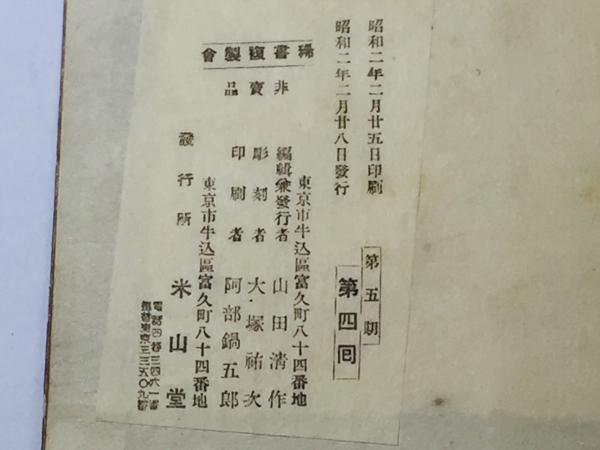 昭和二年二月廿五日印刷
昭和二年二月廿八日發行
第五期
第四回
稀書複製會
非賣品
東京市牛込區富久町八十四番地
編輯兼發行者 山田清作
彫刻者 大塚祐次
印刷者 阿部鍋五郎
東京市牛込區富久町八十四番地
發行所 米山堂
電話四谷三四六一番
振替東京三三五〇九番